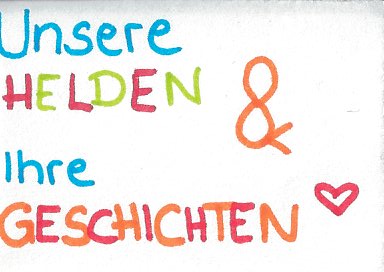 Unsere
HELDEN &
Ihre
GESCHICHTEN